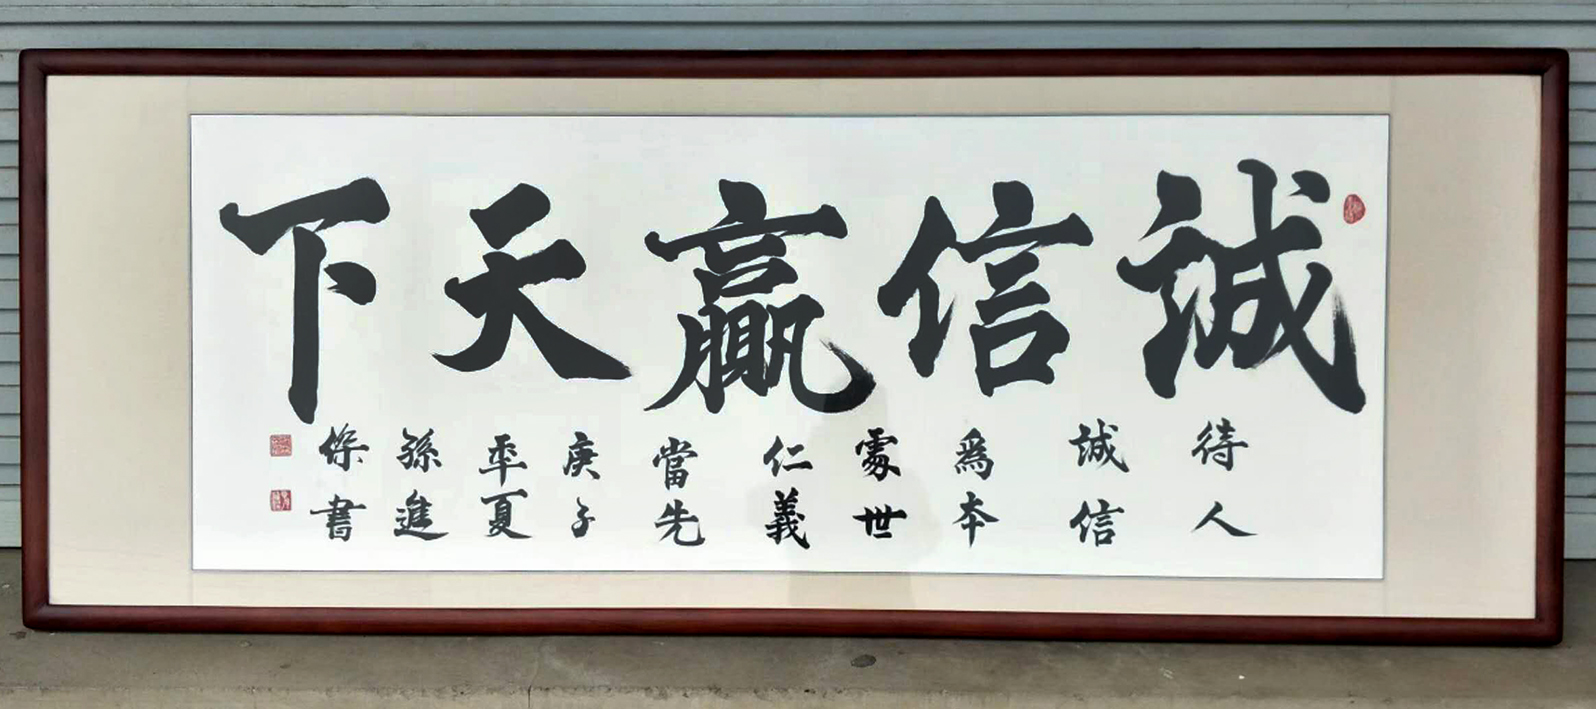 誠信贏天下
待人
誠信
爲本
處世
仁義
當先
庚子
年夏
孫進
保書